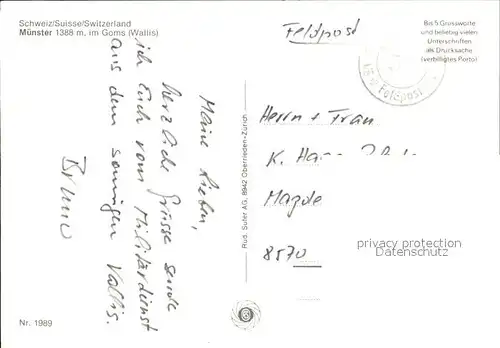 Schweiz/Suisse/Switzerland
Münster 1388 m, im Goms (Wallis)
Meine Lieben,
herzliche Grüsse sende
ich Euch vom Militärdienst
aus dem sonnigen Wallis.
Bruno
Nr. 1989
Rud. Suter AG, 8942 Oberrieden-Zürich
Feldpost
Bis 5 Grussworte
und beliebig vielen
Unterschriften
als Drucksache
(verbilligtes Porto)
Feldpost
Herrn + Frau
K.
8570
privacy protection
oldthing.de